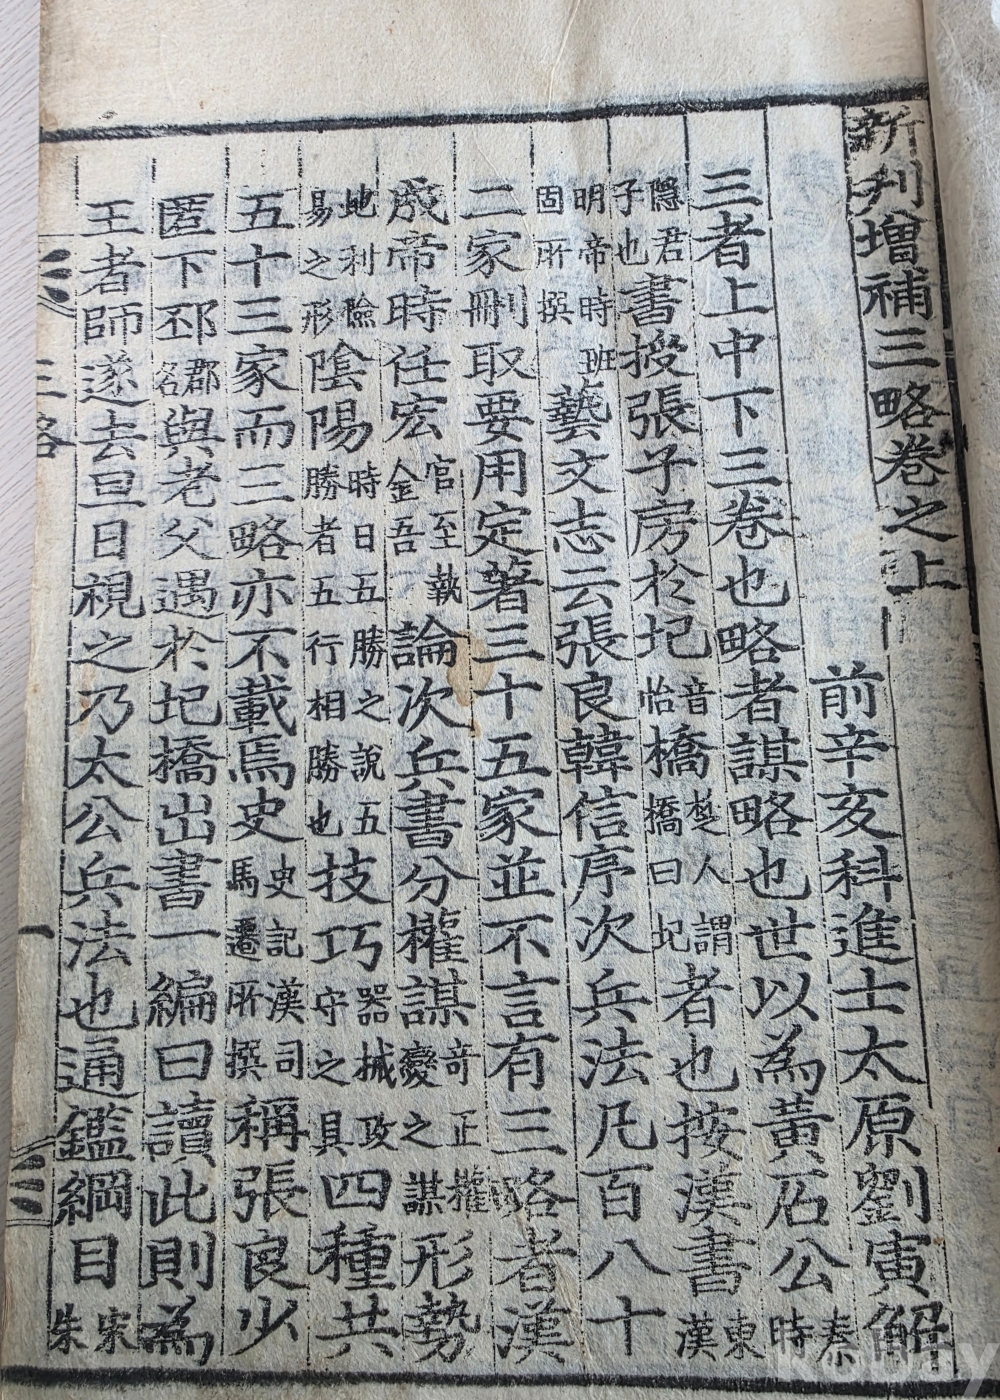 新刋增補三略卷之上
前辛亥科進士太原劉寅解
三者上中下三卷也略者謀略也世以為黃石公秦時
隱君子也書授張子房於圯音怡橋楚人謂橋曰圯者也按漢書東漢
明帝時班固所撰藝文志云張良韓信序次兵法凡百八十
二家刪取要用定著三十五家並不言有三略者漢
成帝時任宏官至執金吾論次兵書分權謀奇正權變之謀形勢
地利險易之形陰陽時日五勝之說五勝者五行相勝也技巧器械攻守之具四種共
五十三家而三略亦不載焉史史記漢司馬遷所撰稱張良少
匿下邳郡名與老父遇於圯橋出書一編曰讀此則為
王者師遂去旦日視之乃太公兵法也通鑑綱目宋朱
三略
一
kobay